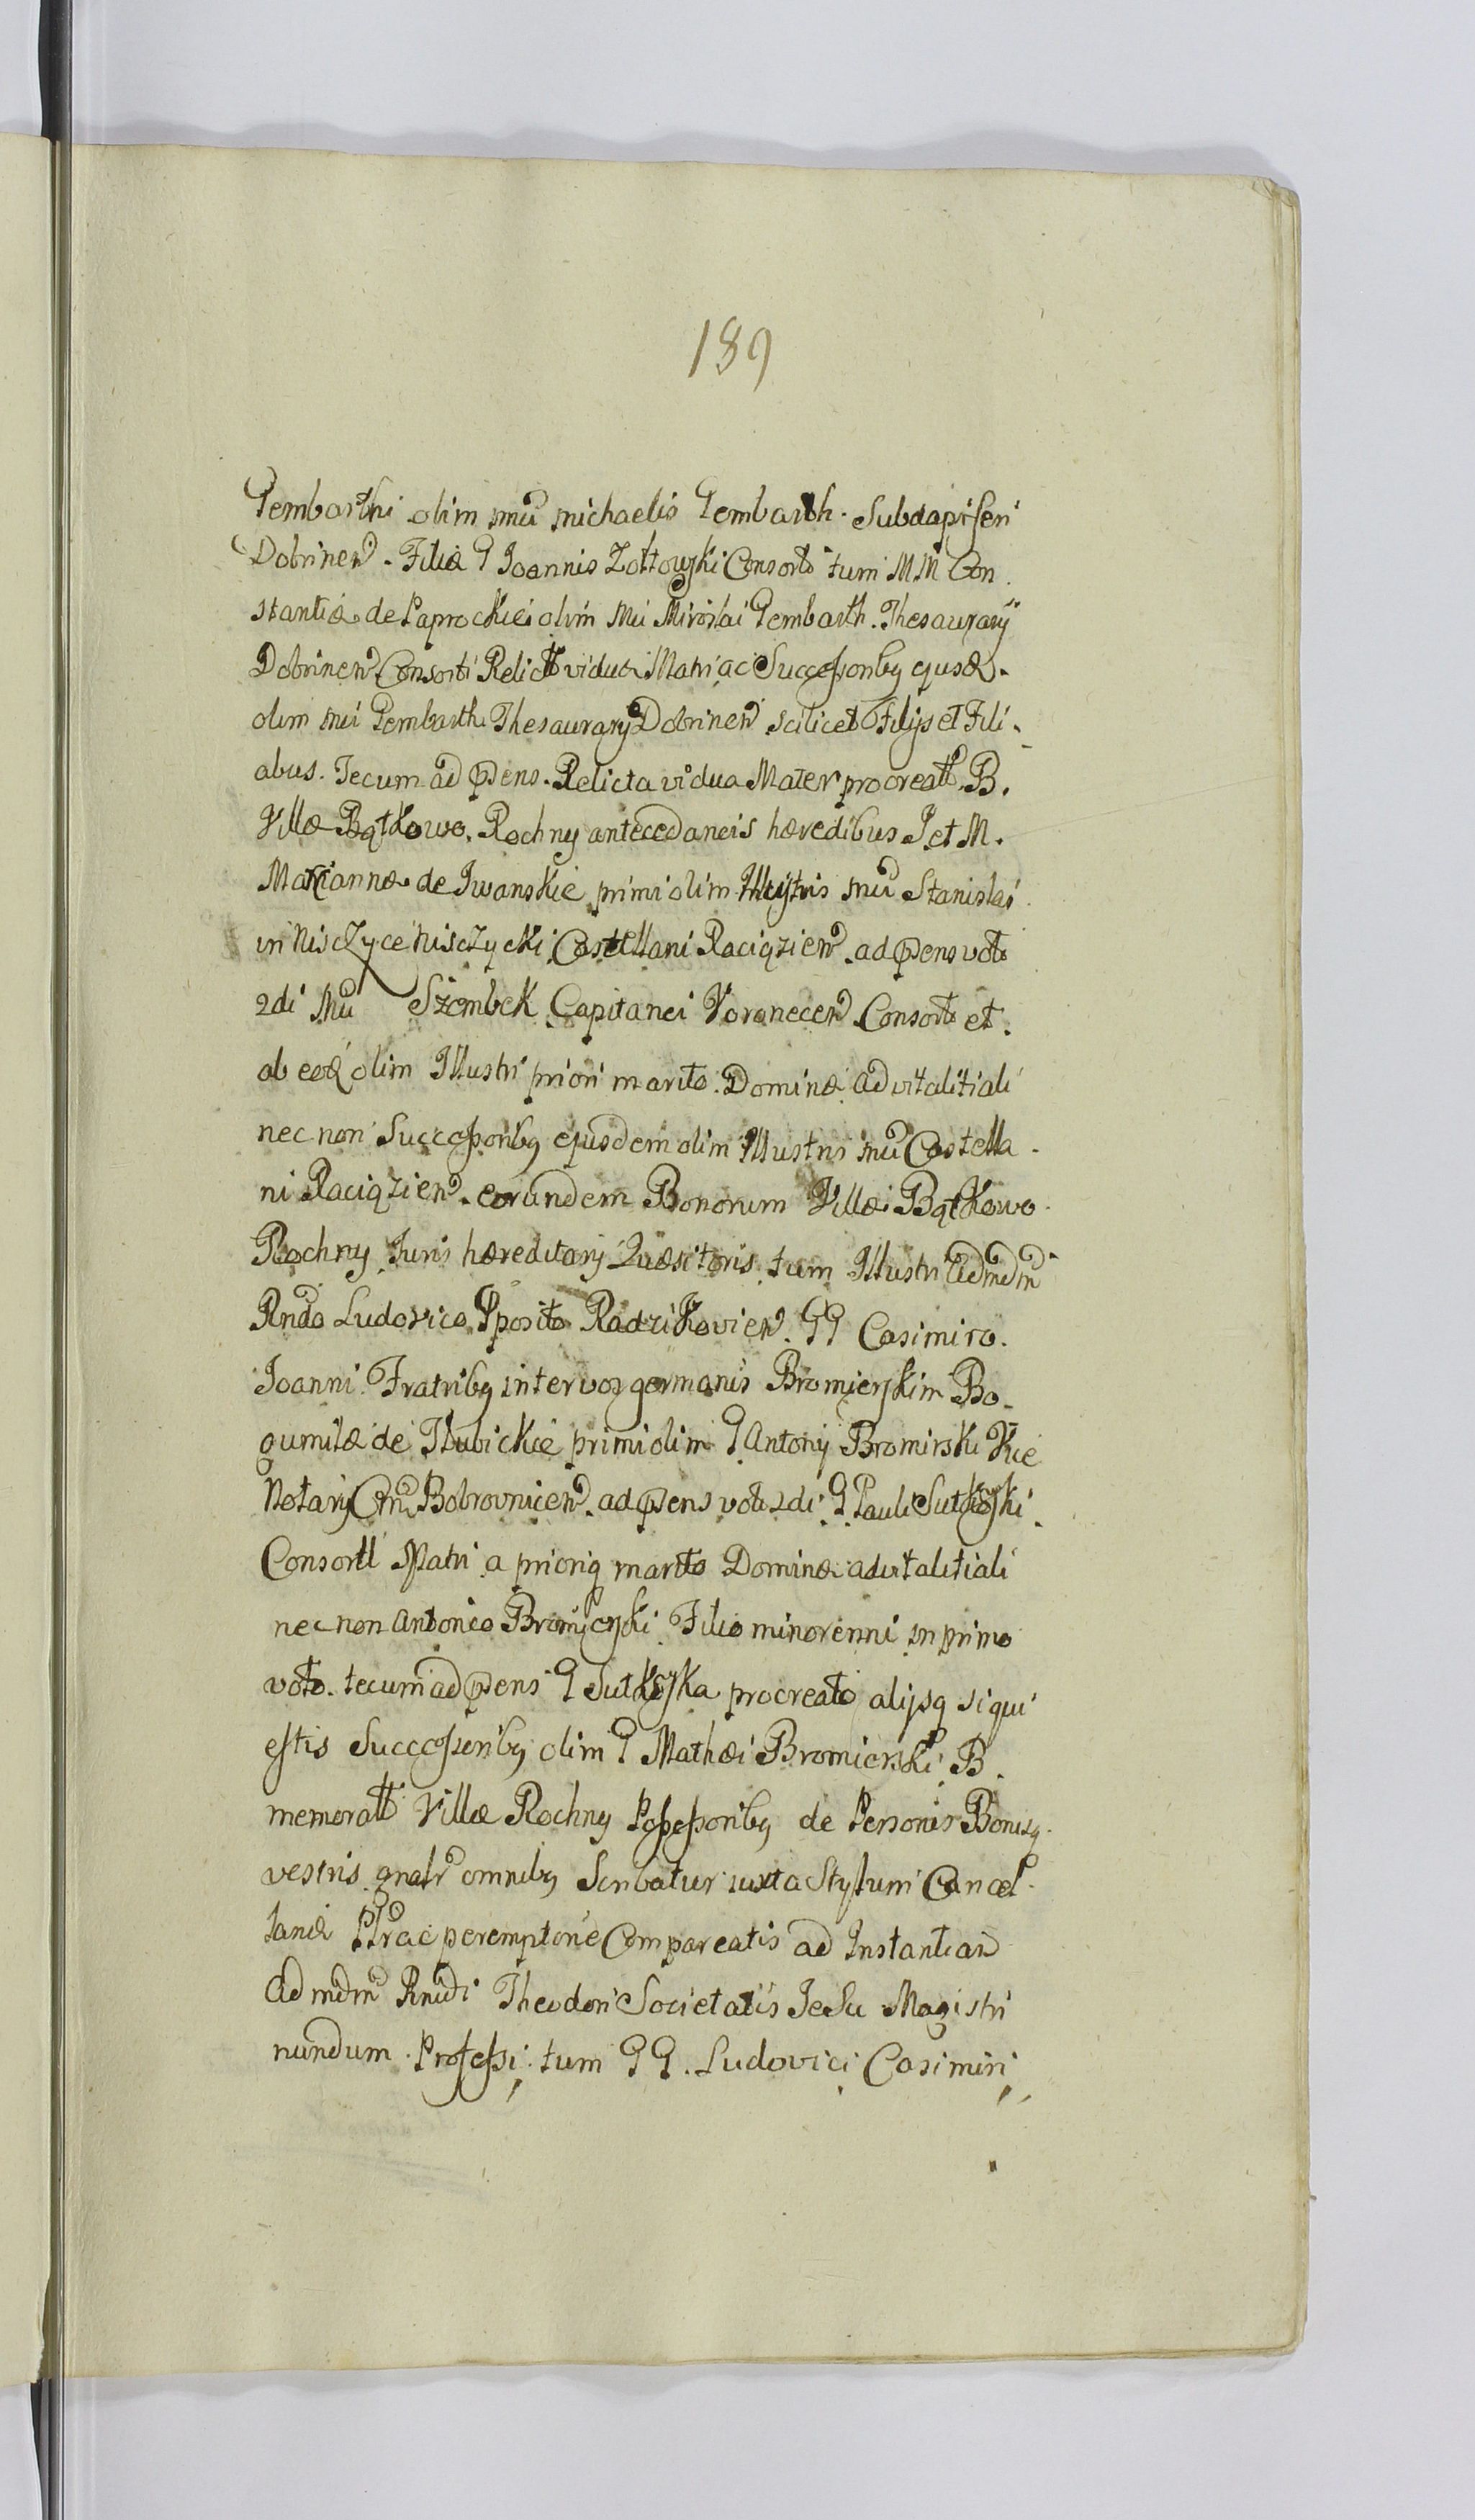 189
Gembarthi olim Mci Michaelis Gembarth. Subdapiferi
Dobrinen. Filia G Joannis Zołtowski Consorti tum M M Con
stantiæ de Paprockie olim Mci Mirosłai Gembarth. Thesaurarij
Dobrinen Consorti Relictæ viduæ Matri ac Successoribq ejusd.
olim Mci Gembarth Thesaurarij Dobrinen scilicet Filijs et Fili
abus. Tecum ad præsens. Relicta vidua Mater procreatt. B.
Villæ Bątkowo. Rochny antecedaneis hæredibus J et M.
Mariannæ de Iwanskie primi olim Illustris Mci Stanislai
in Nisczyce Nisczycki Castellani Raciązien. ad præsens voto
2di Mci Szembek Capitanei Voranecen Consorti et.
ab eod olim Illustri priori marito. Dominæ advitalitiali
nec non Successoribq ejusdem olim Illustris Mci Castella
ni Raciązien. eorundem Bonorum Villæ Bątkowo
Rochny Juris hæreditarij Quæsitoris tum Illustri Admdm
Rndo Ludovico Pposito Radzikovien. GG Casimiro.
Joanni Fratribq inter vos germanis Bromierskim Bo
gumilæ de Hlubickie primi olim G Antonij Bromirski Vice
Notarij Crii Bobrovnicen. ad præsens voti 2di G Pauli Sutkoski
Consorti Matri a priorq marito Dominæ advitalitiali
nec non Antonio Bromierski Filio minorenni in primo
voto. tecum ad præsens G Sutkoska procreato alijsq siqui
estis Successoribq olim G Mathæi Bromierski B.
memoratt Villæ Rochny Possessoribq de Personis Bonisq
vestris gnalr omnibq Scribatur iuxta Stylum Cancel
lariæ Plræ peremptorie Compareatis ad Instantiam
Admdm Rnndi Theodori Societatis Jesu Magistri
nundum Professi tum GG. Ludovici Casimiri